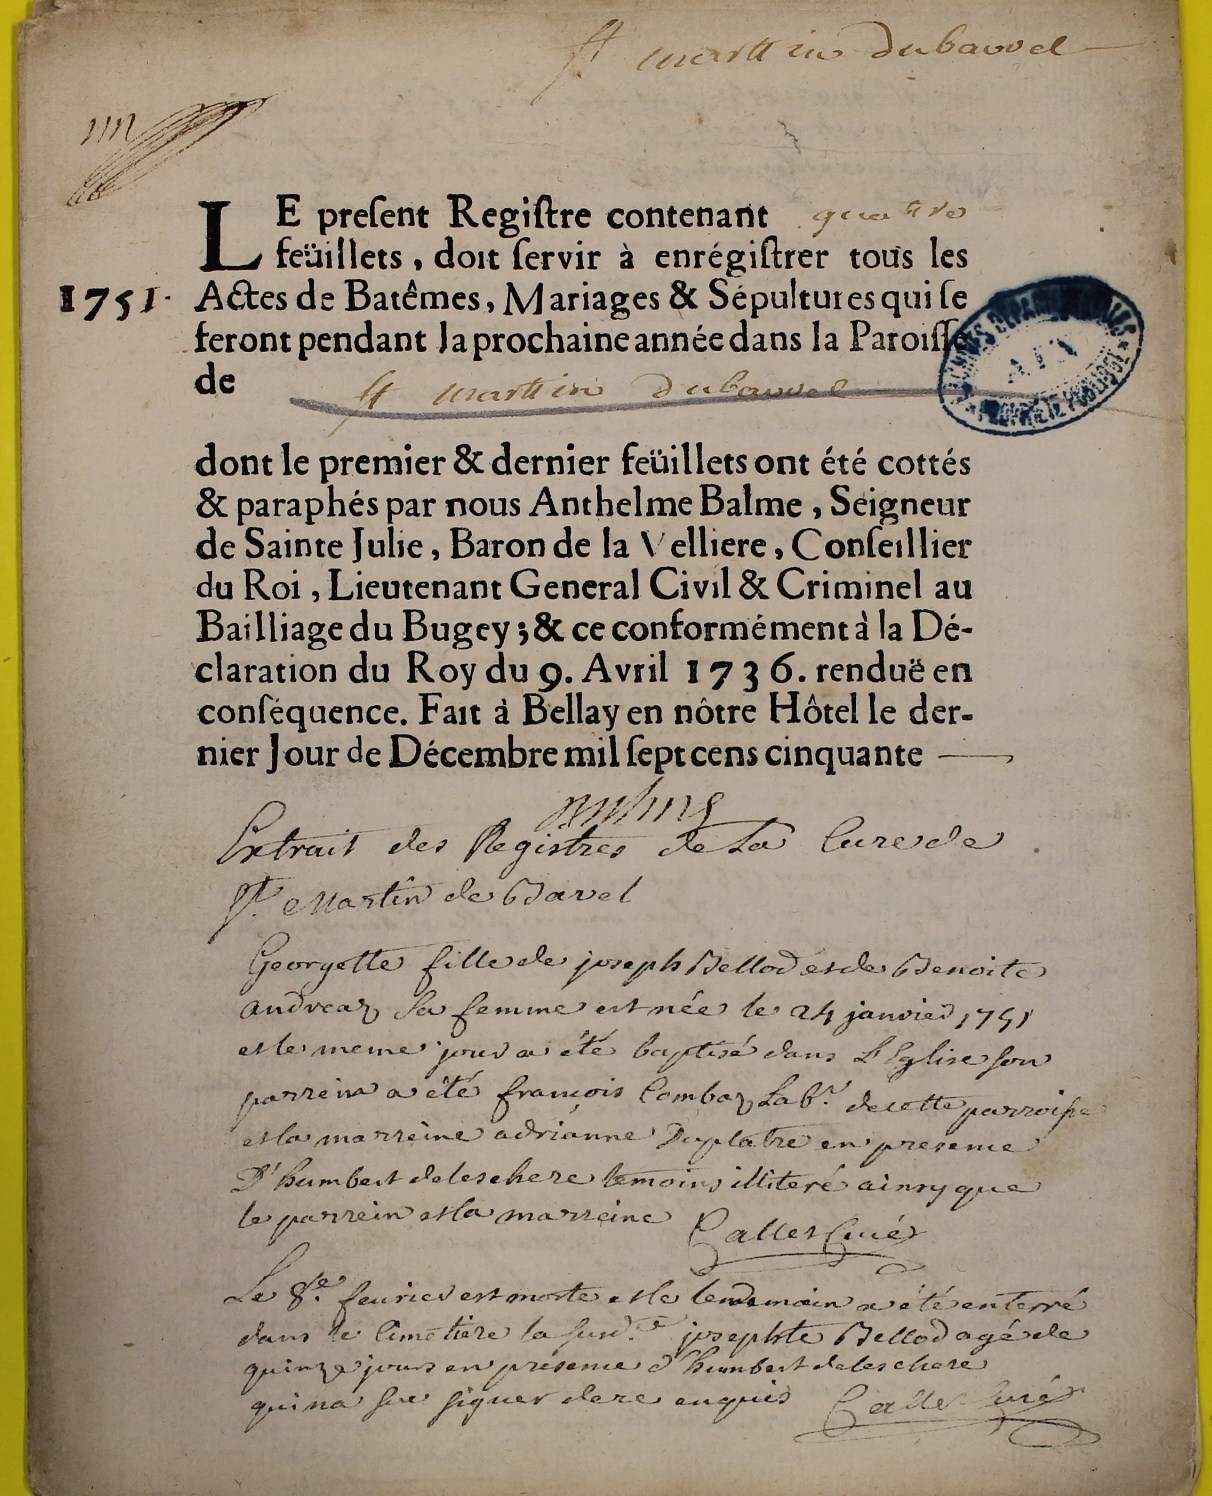 St marttin dubavvel
LE preſent Regiſtre contenant quatre
feüillets, doit ſervir à enrégiſtrer tous les
1751. Actes de Batêmes, Mariages & Sépultures qui ſe
feront pendant la prochaine année dans la Paroiſſe
de St marttin dubavvel
ARCHIVES DEPARTEMENTALES
AIN
PROPRIETE PUBLIQUE
dont le premier & dernier feüillets ont été cottés
& paraphés par nous Anthelme Balme, Seigneur
de Sainte Julie, Baron de la Velliere, Conſeillier
du Roi, Lieutenant General Civil & Criminel au
Bailliage du Bugey; & ce conformément à la Dé-
claration du Roy du 9. Avril 1736. renduë en
conſéquence. Fait à Bellay en nôtre Hôtel le der-
nier Jour de Décembre mil ſept cens cinquante
Extrait des Registres de La Cure de
St. Martin de Bavel
Georgette fille de joseph Bellod et de Benoite
andreaz Sa femme est née le 24 janvier 1751
et le meme jour a été baptisé dans L'Eglise son
parrein a été françois Combaz Labr. de cette parroisse
et la marreine adrianne Duplatre en presence
D'humbert deleschere temoins illiteré ainsy que
le parrein et la marreine Callet Curé
Le 8e. feurier est morte et le lendemain a été enterré
dans le Cimetiere la susd.e josephte Bellod agé de
quinze jours en presence d'humbert deleschere
qui na sçu signer de ce enquis Callet Curé